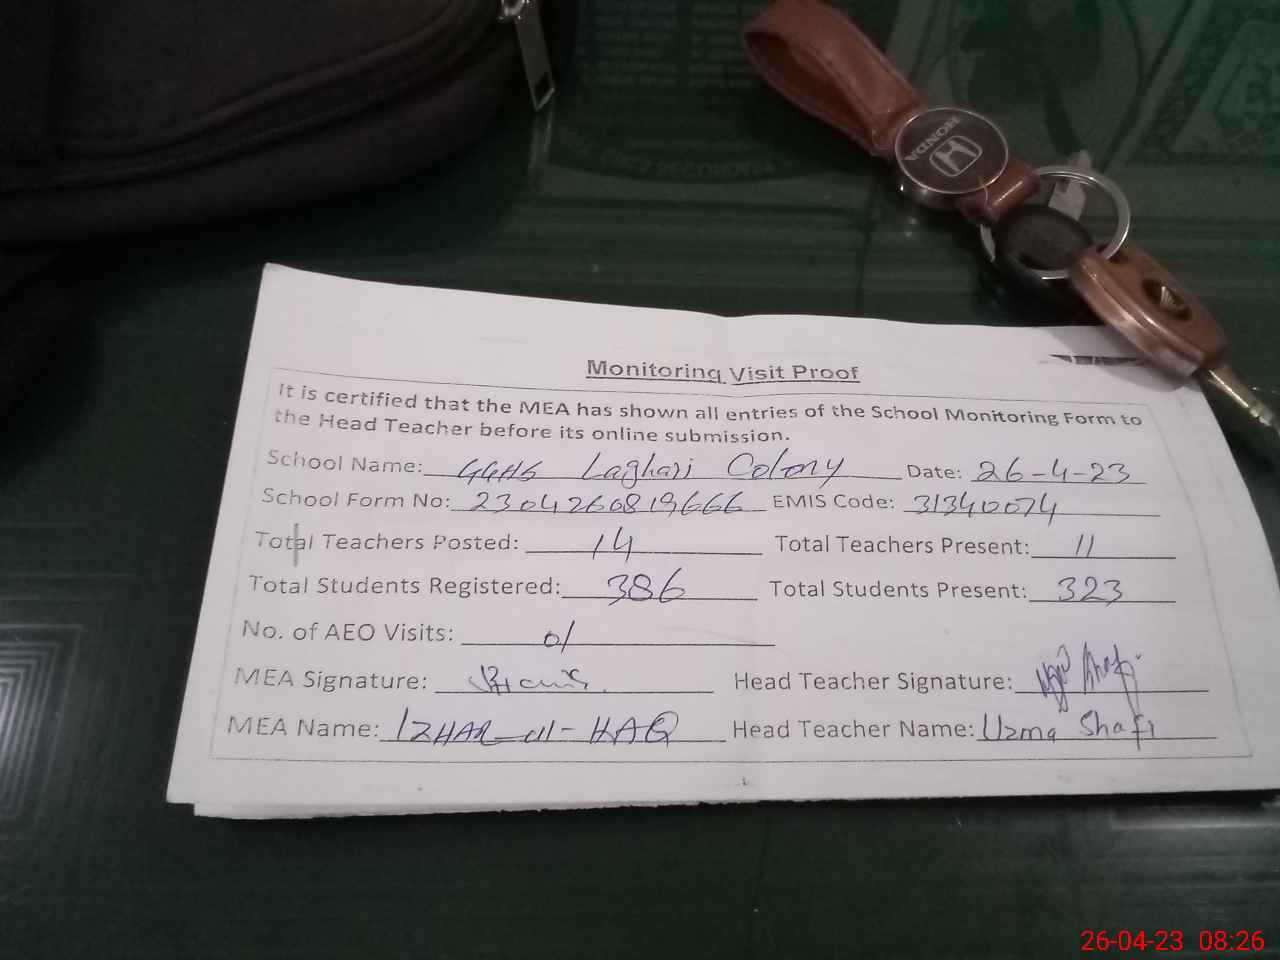 HONDA
Monitoring Visit Proof
It is certified that the MEA has shown all entries of the School Monitoring Form to
the Head Teacher before its online submission.
School Name: GGHS Laghari Colony Date: 26-4-23
School Form No: 2304260819666 EMIS Code: 31340074
Total Teachers Posted: 14 Total Teachers Present: 11
Total Students Registered: 386 Total Students Present: 323
No. of AEO Visits: 01
MEA Signature: Head Teacher Signature:
MEA Name: IZHAR-ul-HAQ Head Teacher Name: Uzma Shafi
26-04-23 08:26